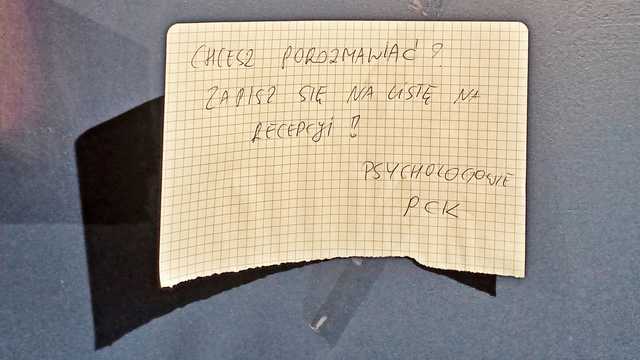 CHCESZ POROZMAWIAĆ?
ZAPISZ SIĘ NA LISTĘ NA
RECEPCJI!
PSYCHOLOGOWIE
PCK